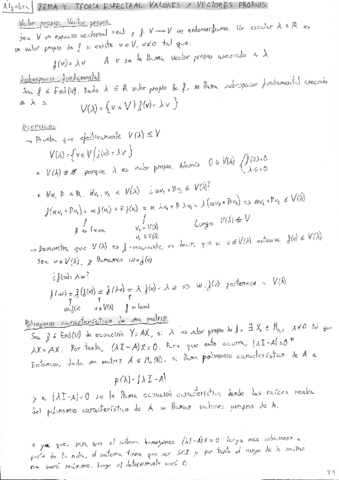 Algebra TEMA 4: TEORÍA ESPECTRAL: VALORES Y VECTORES PROPIOS.
Valor propio, Vector propio
Sea V un espacio vectorial real, y f V → V un endomorfismo. Un escalar λ ∈ R es
un valor propio de f si existe v ∈ V, v ≠ 0 tal que:
f(v) = λv A v se le llama vector propio asociado a λ
Subespacio fundamental
Sea f ∈ End(V). Dado λ ∈ R valor propio de f, se llama subespacio fundamental asociado
a λ a
V(λ) = {v ∈ V | f(v) = λv}
Ejercicios
→ Prueba que efectivamente V(λ) ≤ V
V(λ) = {v ∈ V | f(v) = λv}
• V(λ) ≠ ∅ porque λ es valor propio. Además 0 ∈ V(λ) {f(0)=0 λ·0=0
Luego V(λ) ≤ V
→ Demuestra que V(λ) es f-invariante, es decir, que si v ∈ V(λ) entonces f(v) ∈ V(λ)
Sea v ∈ V(λ), y llamamos w = f(v)
¿f(w) = λw?
f(w) = f(f(v)) = f(λv) = λ f(v) = λw ⇒ w = f(v) pertenece a V(λ)
w = f(v) v ∈ V(λ) f lineal
Polinomio característico de una matriz
Sea f ∈ End(V) de ecuación Y = AX, si λ es valor propio de f, ∃ X ∈ M X ≠ 0 tal que
λX = AX. Por tanto, (λI-A)X = 0. Para que esto ocurra, |λI-A| = 0*
Entonces, dada una matriz A ∈ M se llama polinomio característico de A a
p(λ) = |λI-A|
y a |λI-A| = 0 se le llama ecuación característica donde las raíces reales
del polinomio característico de A se llaman valores propios de A.
* ya que, para que el sistema homogéneo (λI-A)X = 0 tenga más soluciones a
parte de la nula, el sistema tiene que ser SCI y por tanto el rango de la matriz
no será máximo, luego el determinante será 0